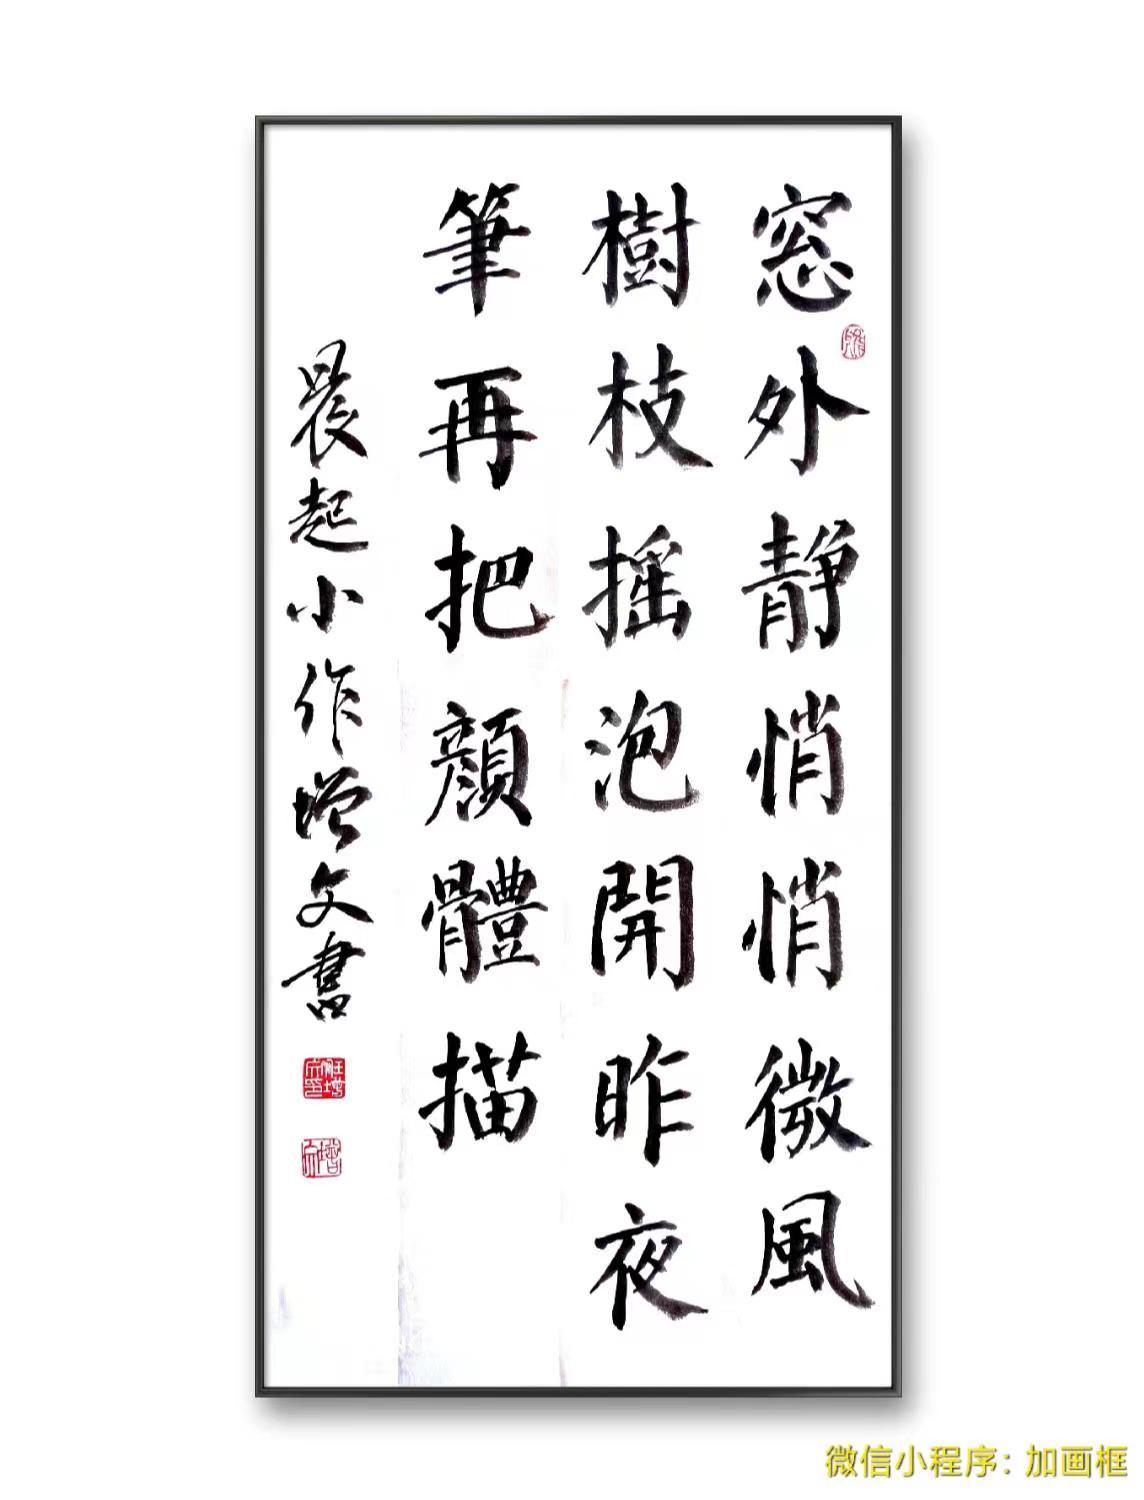 窓外靜悄悄微風
樹枝摇泡開昨夜
筆再把顔體描
晨起小作增文書
微信小程序：加画框